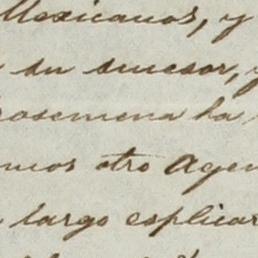 Mexicanos, y
su sucesor, y
rosemena ha
mos otro Agen
largo esplicar